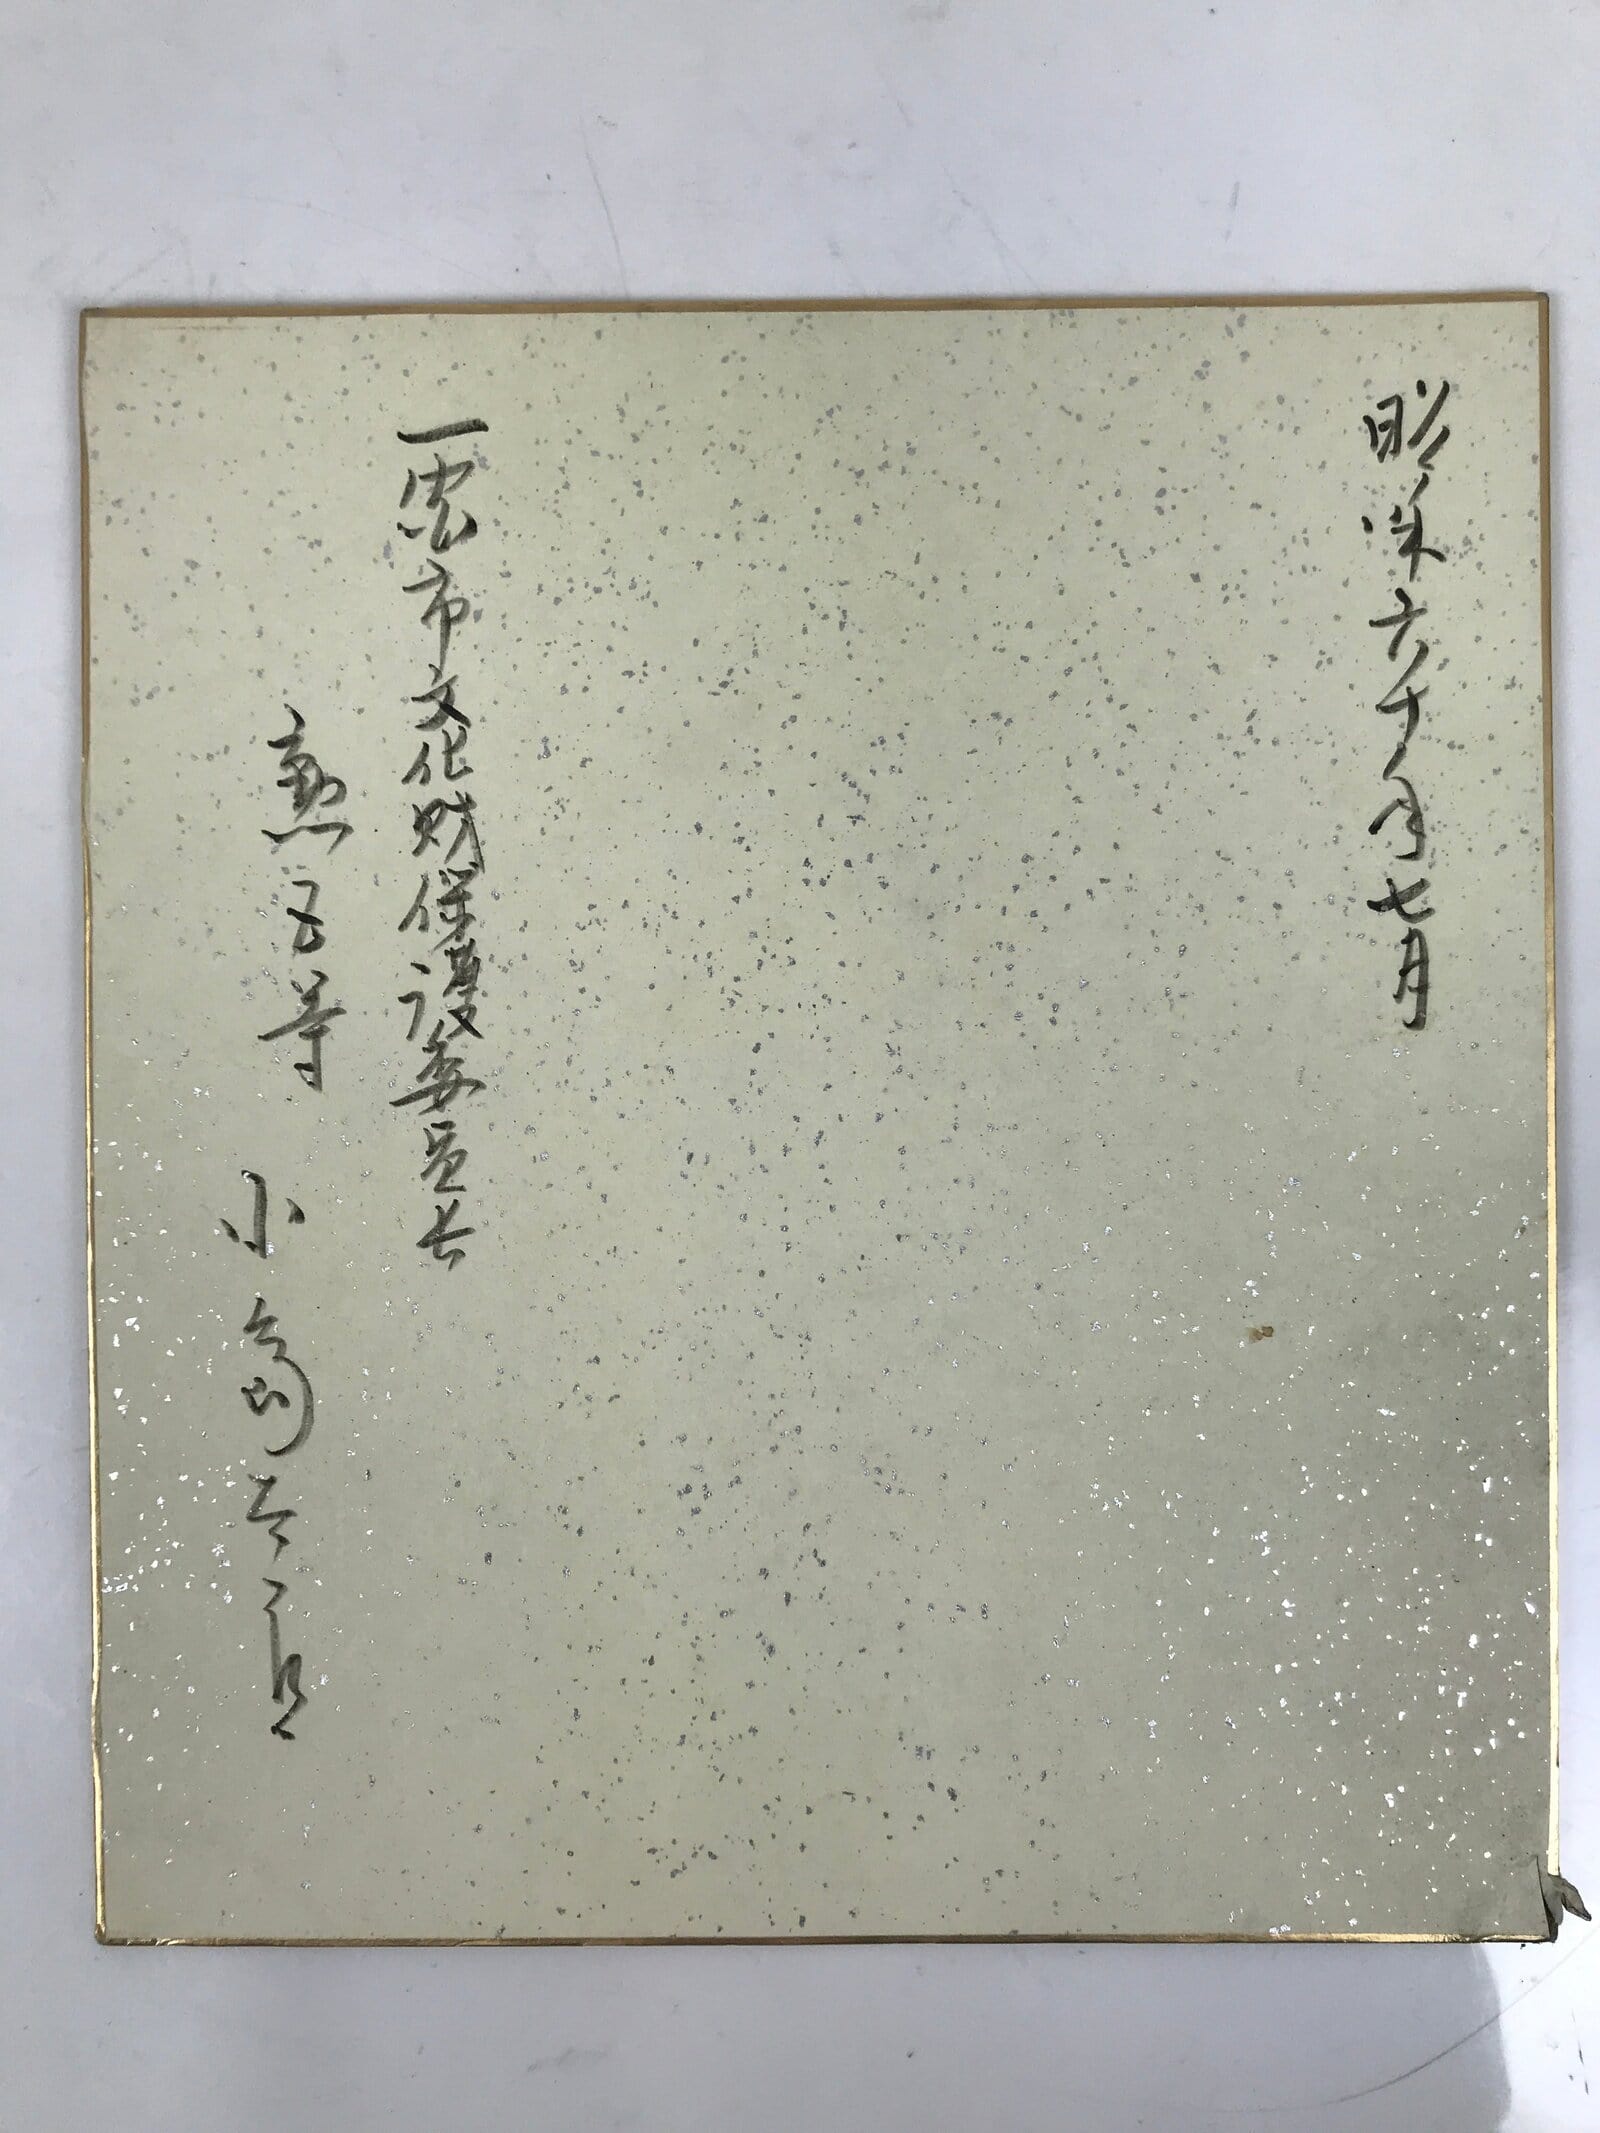 昭和六十年七月
一宮市文化財保護委員長
勲五等 小